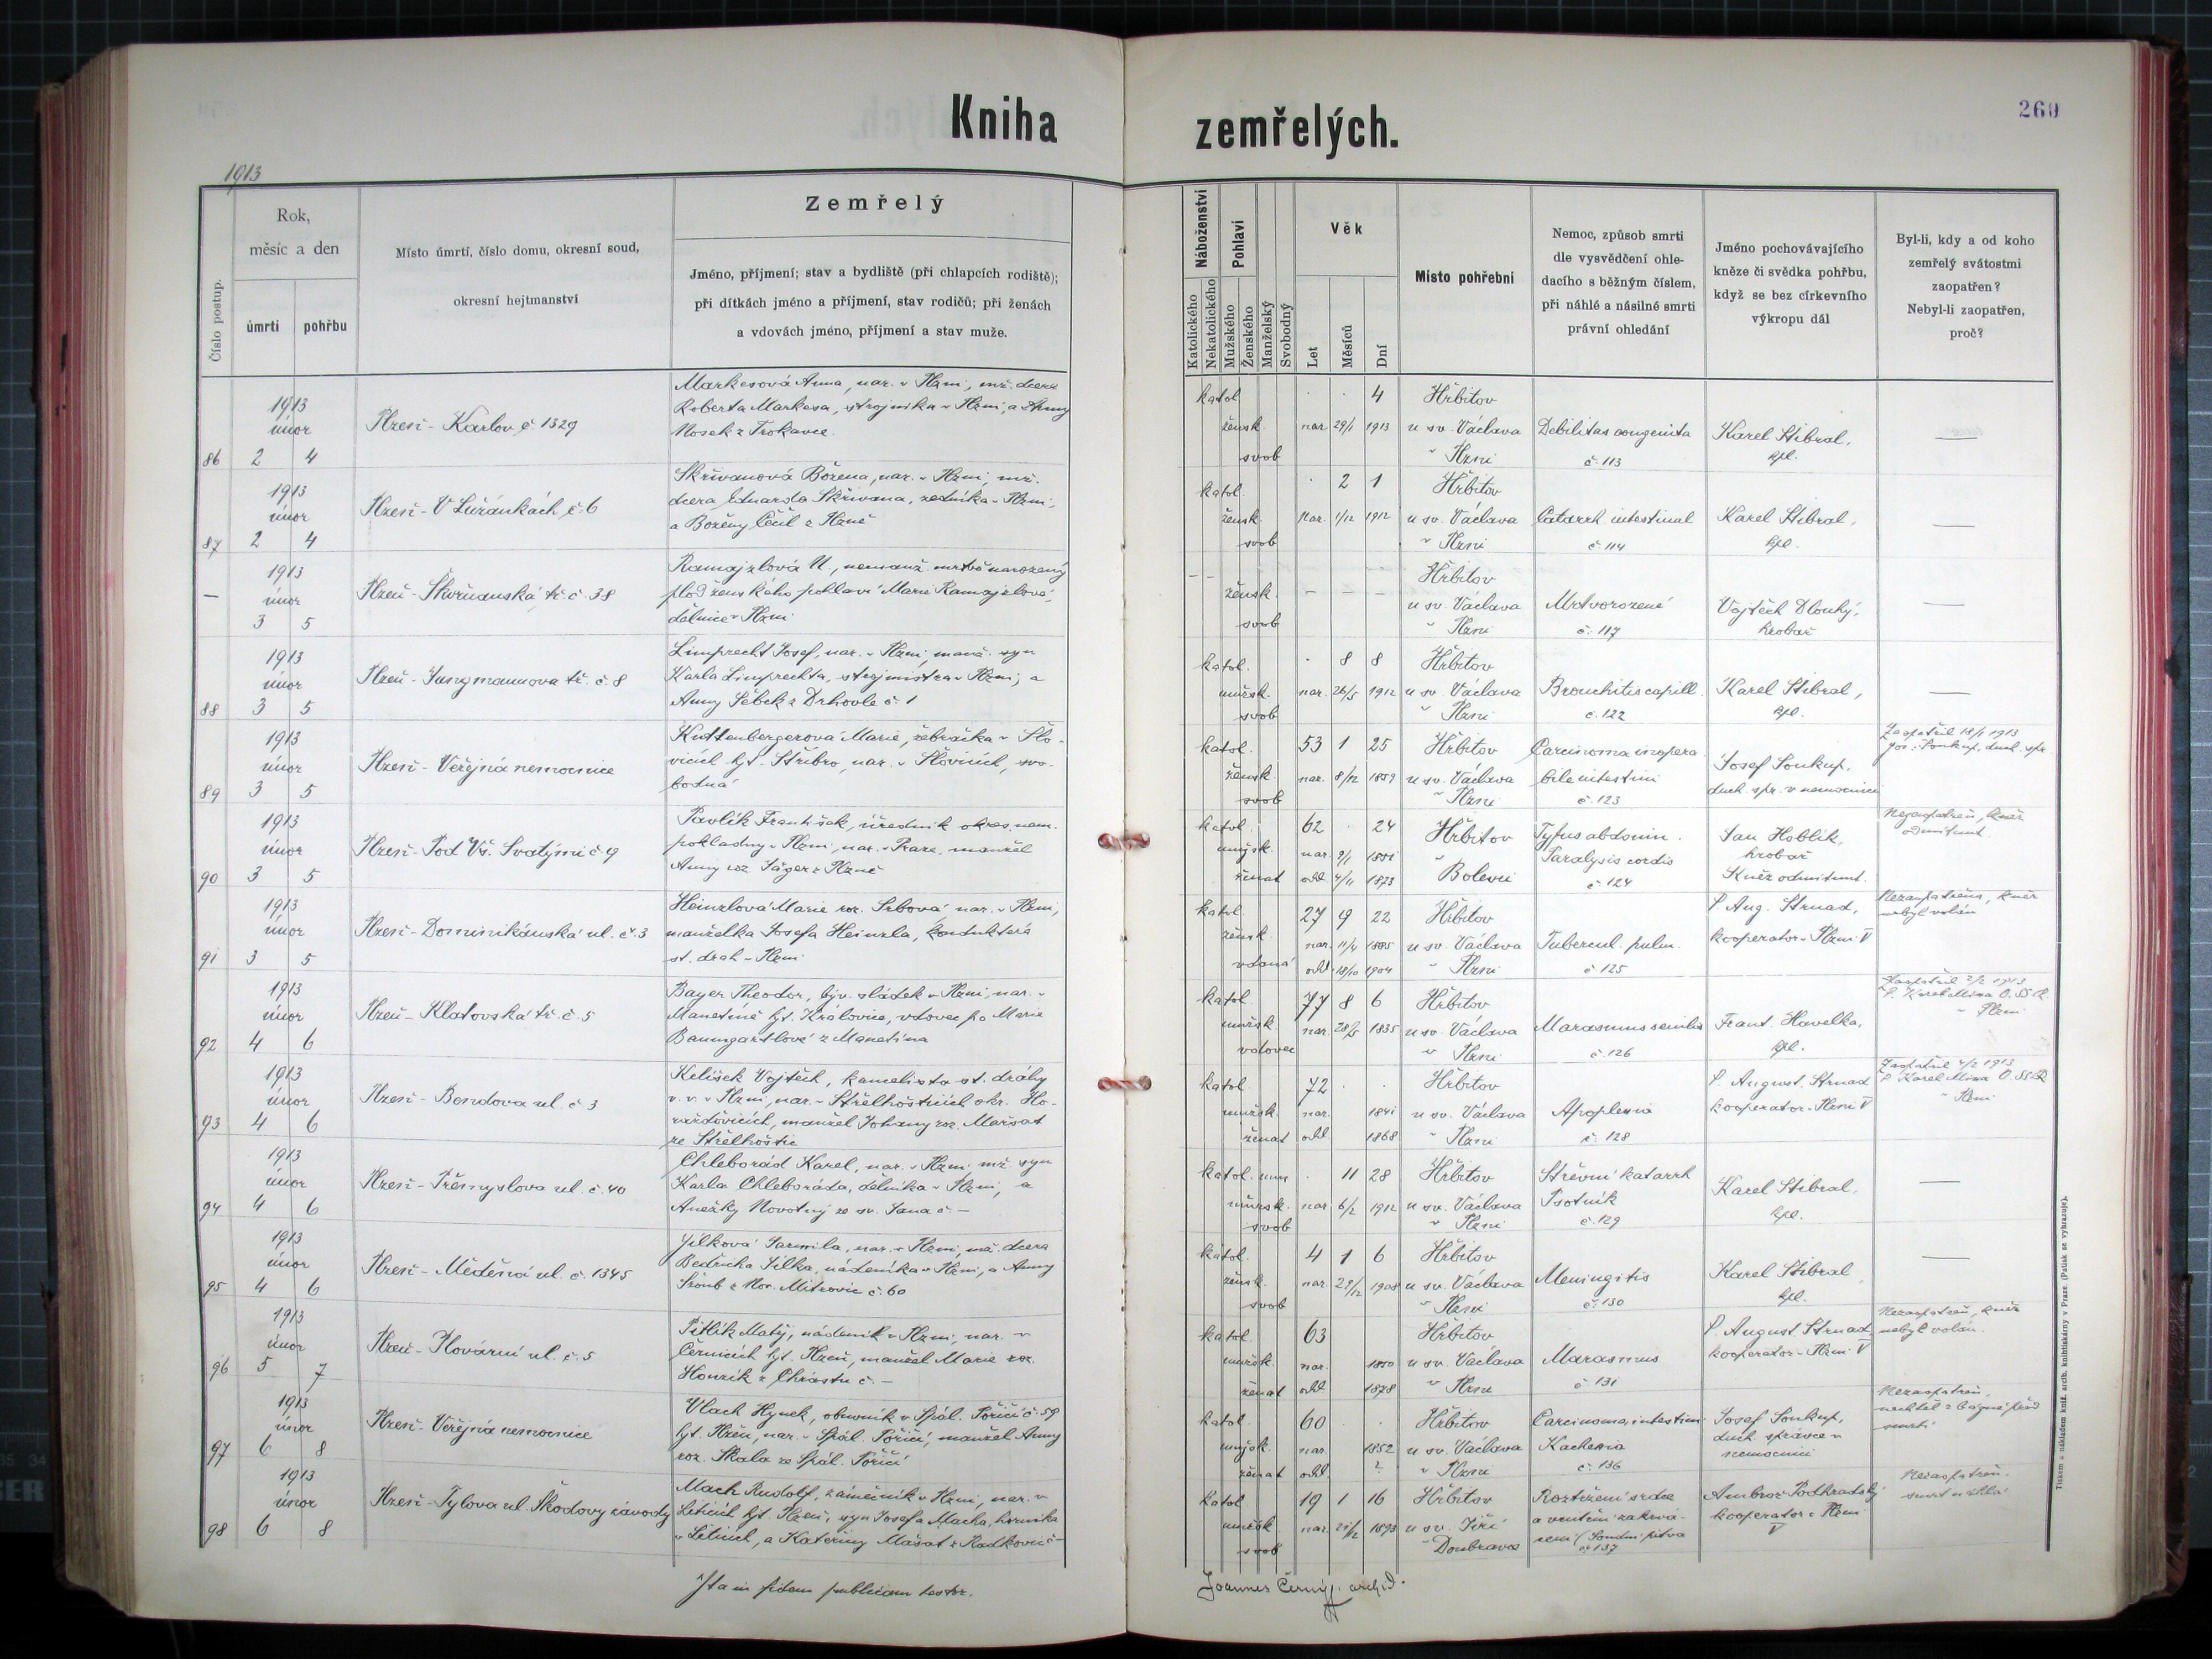 Kniha zemřelých.
260
1913
Číslo postup.
Rok,
měsíc a den
úmrtí
pohřbu
Místo úmrtí, číslo domu, okresní soud,
okresní hejtmanství
Zemřelý
Jméno, příjmení; stav a bydliště (při chlapcích rodiště);
při dítkách jméno a příjmení, stav rodičů; při ženách
a vdovách jméno, příjmení a stav muže.
Náboženství
Katolického
Nekatolického
Pohlaví
Mužského
Ženského
Manželský
Svobodný
Věk
Let
Měsíců
Dní
Místo pohřební
Nemoc, způsob smrti
dle vysvědčení ohle-
dacího s běžným číslem,
při náhlé a násilné smrti
právní ohledání
Jméno pochovávajícího
kněze či svědka pohřbu,
když se bez církevního
výkropu dál
Byl-li, kdy a od koho
zemřelý svátostmi
zaopatřen?
Nebyl-li zaopatřen,
proč?
86
1913
únor
2 4
Plzeň - Karlov č. 1329
Markesová Anna, nar. v Plzni, mž. dcera
Roberta Markesa, strojníka v Plzni, a Anny
Nosek z Trokavce.
katol.
žensk.
svob
4
nar. 29/1 1913
Hřbitov
u sv. Václava
v Plzni
Debilitas congenita
č. 113
Karel Stibral,
kpl.
—
87
1913
únor
2 4
Plzeň - V Lužánkách č. 6
Skřivanová Božena, nar. v Plzni, mž.
dcera Eduarda Skřivana, zedníka v Plzni,
a Boženy Čečil z Plzně
katol.
žensk.
svob
2 1
nar. 1/12 1912
Hřbitov
u sv. Václava
v Plzni
Catarrh. intestinal
č. 114
Karel Stibral,
kpl.
—
—
1913
únor
3 5
Plzeň - Skvrňanská tř. č. 38
Ramajzlová N., nemanž. mrtvě narozený
plod ženského pohlaví Marie Ramajzlové,
dělnice v Plzni
žensk.
svob
— — —
Hřbitov
u sv. Václava
v Plzni
Mrtvorozené
č. 117
Vojtěch Dlouhý,
hrobař
—
88
1913
únor
3 5
Plzeň - Jungmannova tř. č. 8
Limprecht Josef, nar. v Plzni, manž. syn
Karla Limprechta, strojmistra v Plzni, a
Anny Šebek z Drhovle č. 1
katol.
mužsk.
svob
8 8
nar. 26/5 1912
Hřbitov
u sv. Václava
v Plzni
Bronchitis capill.
č. 122
Karel Stibral,
kpl.
—
89
1913
únor
3 5
Plzeň - Veřejná nemocnice
Kuttenbergerová Marie, žebračka v Slo-
vicích hjt. Stříbro, nar. v Slovicích, svo-
bodná
katol.
žensk.
svob
53 1 25
nar. 8/12 1859
Hřbitov
u sv. Václava
v Plzni
Carcinoma inopera-
bile intestini
č. 123
Josef Soukup,
duch. spr. v nemocnici
Zaopatřil 18/1 1913
Jos. Soukup, duch. spr.
90
1913
únor
3 5
Plzeň - Pod Vš. Svatými č. 9
Pavlík František, úředník okres. nem.
pokladny v Plzni, nar. v Praze, manžel
Anny roz. Jäger z Plzně
katol.
mužsk.
ženat
62 24
nar. 9/1 1851
odd. 4/11 1873
Hřbitov
v
Bolevci
Tyfus abdomin.
Paralysis cordis
č. 124
Jan Hoblík,
hrobař
Kněz odmítnut.
Nezaopatřen, kněz
odmítnut.
91
1913
únor
3 5
Plzeň - Dominikánská ul. č. 3
Heinzlová Marie roz. Srbová nar. v Plzni,
manželka Josefa Heinzla, konduktéra
st. drah v Plzni
katol.
žensk.
vdaná
27 9 22
nar. 11/4 1885
odd. 18/10 1904
Hřbitov
u sv. Václava
v Plzni
Tubercul. pulm.
č. 125
P. Aug. Strnad,
kooperator v Plzni V
Nezaopatřena, kněz
nebyl volán
92
1913
únor
4 6
Plzeň - Klatovská tř. č. 5
Bayer Theodor, býv. sládek v Plzni, nar. v
Manetíně hjt. Kralovice, vdovec po Marie
Baumgartlové z Manetína
katol.
mužsk.
vdovec
77 8 6
nar. 28/5 1835
Hřbitov
u sv. Václava
v Plzni
Marasmus senilis
č. 126
Frant. Havelka,
kpl.
Zaopatřil 2/2 1913
P. Karel
v Plzni
93
1913
únor
4 6
Plzeň - Bendova ul. č. 3
Kelišek Vojtěch, st. dráhy
v. v. v Plzni, nar. v Střelhošticích okr. Ho-
ražďovicích, manžel Johany roz. Maršat
ze Střelhoštic
katol.
mužsk.
ženat
72
nar. 1841
odd. 1868
Hřbitov
u sv. Václava
v Plzni
Apoplexia
č. 128
P. August. Strnad
kooperator v Plzni V
Zaopatřil 4/2 1913
P. Karel
v Plzni
94
1913
únor
4 6
Plzeň - Přemyslova ul. č. 40
Chleborád Karel, nar. v Plzni, mž. syn
Karla Chleboráda, dělníka v Plzni, a
Anežky Novotný ze sv. Jana č. —
katol.
mužsk.
svob
11 28
nar. 6/2 1912
Hřbitov
u sv. Václava
v Plzni
Střevní katarrh
Psotník
č. 129
Karel Stibral,
kpl.
—
95
1913
únor
4 6
Plzeň - ul. č. 1345
Jílková Jarmila, nar. v Plzni, mž. dcera
Bedřicha Jílka, nádeníka v Plzni, a Anny
z Nov. Mitrovic č. 60
katol.
žensk.
svob
4 1 6
nar. 29/12 1908
Hřbitov
u sv. Václava
v Plzni
Meningitis
č. 130
Karel Stibral,
kpl.
—
96
1913
únor
5 7
Plzeň - Plovární ul. č. 5
Pitlík Matěj, nádeník v Plzni, nar. v
Černicích hjt. Plzeň, manžel Marie roz.
Houzík z Chrástu č. —
katol.
mužsk.
ženat
63
nar. 1850
odd. 1878
Hřbitov
u sv. Václava
v Plzni
Marasmus
č. 131
P. August. Strnad
kooperator v Plzni V
Nezaopatřen, kněz
nebyl volán.
97
1913
únor
6 8
Plzeň - Veřejná nemocnice
Vlach Hynek, obuvník v Spál. Poříčí č. 59
hjt. Plzeň, nar. v Spál. Poříčí, manžel Anny
roz. Skala ze Spál. Poříčí
katol.
mužsk.
ženat
60
nar. 1852
odd. ?
Hřbitov
u sv. Václava
v Plzni
Carcinoma intestin.
Kachexia
č. 136
Josef Soukup,
duch. správce v
nemocnici
Nezaopatřen,
nechtěl z bázně před
smrtí
98
1913
únor
6 8
Plzeň - Tylova ul. Škodovy závody
Mach Rudolf, zámečník v Plzni, nar. v
Liticích hjt. Plzeň, syn Josefa Macha, horníka
v Liticích, a Kateřiny Mašat z Radkovic —
katol.
mužsk.
svob
19 1 16
nar. 21/12 1893
Hřbitov
u sv. Jiří
v Doubravce
Roztržení srdce
a vnitřní zakrvá-
cení (Soudní pitva
č. 137
Ambrož Podhradský
kooperator v Plzni
V
Nezaopatřen.
smrt náhlá
Ita in fidem publicam testor.
Joannes Černý, archid.
Tiskem a nákladem kníž. arcib. knihtiskárny v Praze. (Patisk se vyhrazuje).